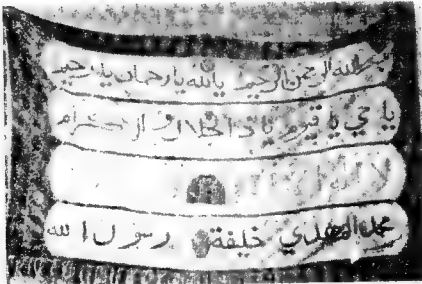 بسم الله الرحمن الرحيم يالله يارحمان يارحيم
ياحي ياقيوم ياذالجلال والاكرام
لا اله
محمد المهدي خليفة رسول الله